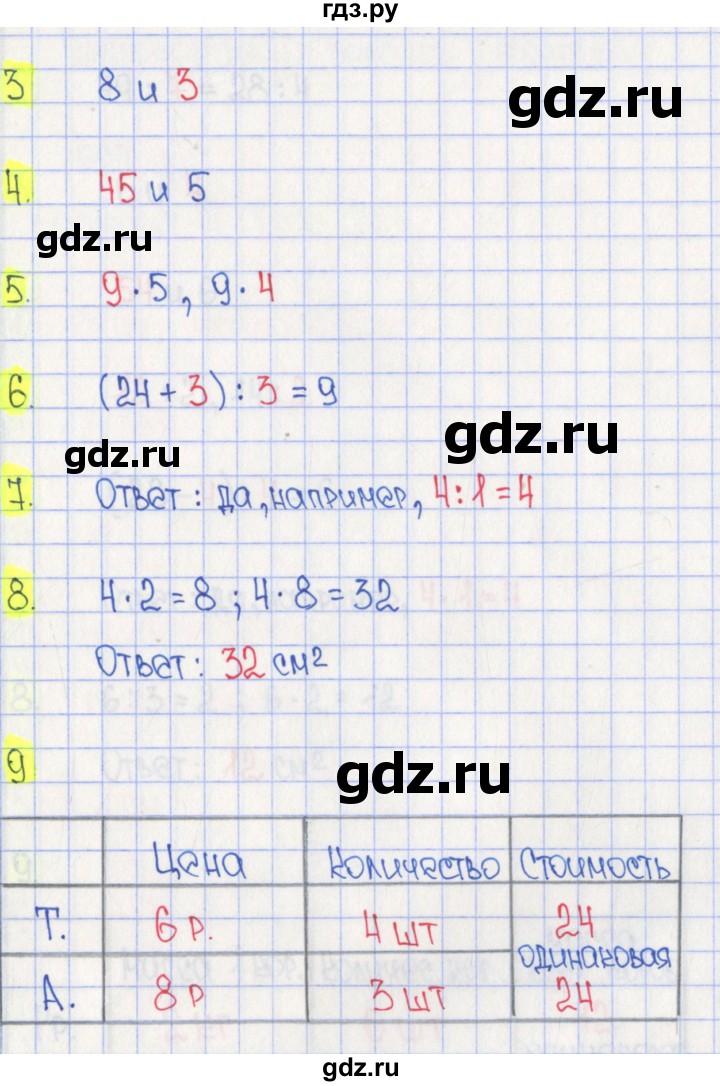 гдз.ру
3 8 и 3
gdz.ru
4. 45 и 5
gdz.ru
5. 9·5, 9·4
6. (24+3):3=9
gdz.ru
gdz.ru
7. Ответ: да, например, 4:1=4
8. 4·2=8; 4·8=32
Ответ: 32 см²
9
gdz.ru
Цена Количество Стоимость
Т. 6 р. 4 шт 24
одинаковая
А. 8 р 3 шт 24
gdz.ru